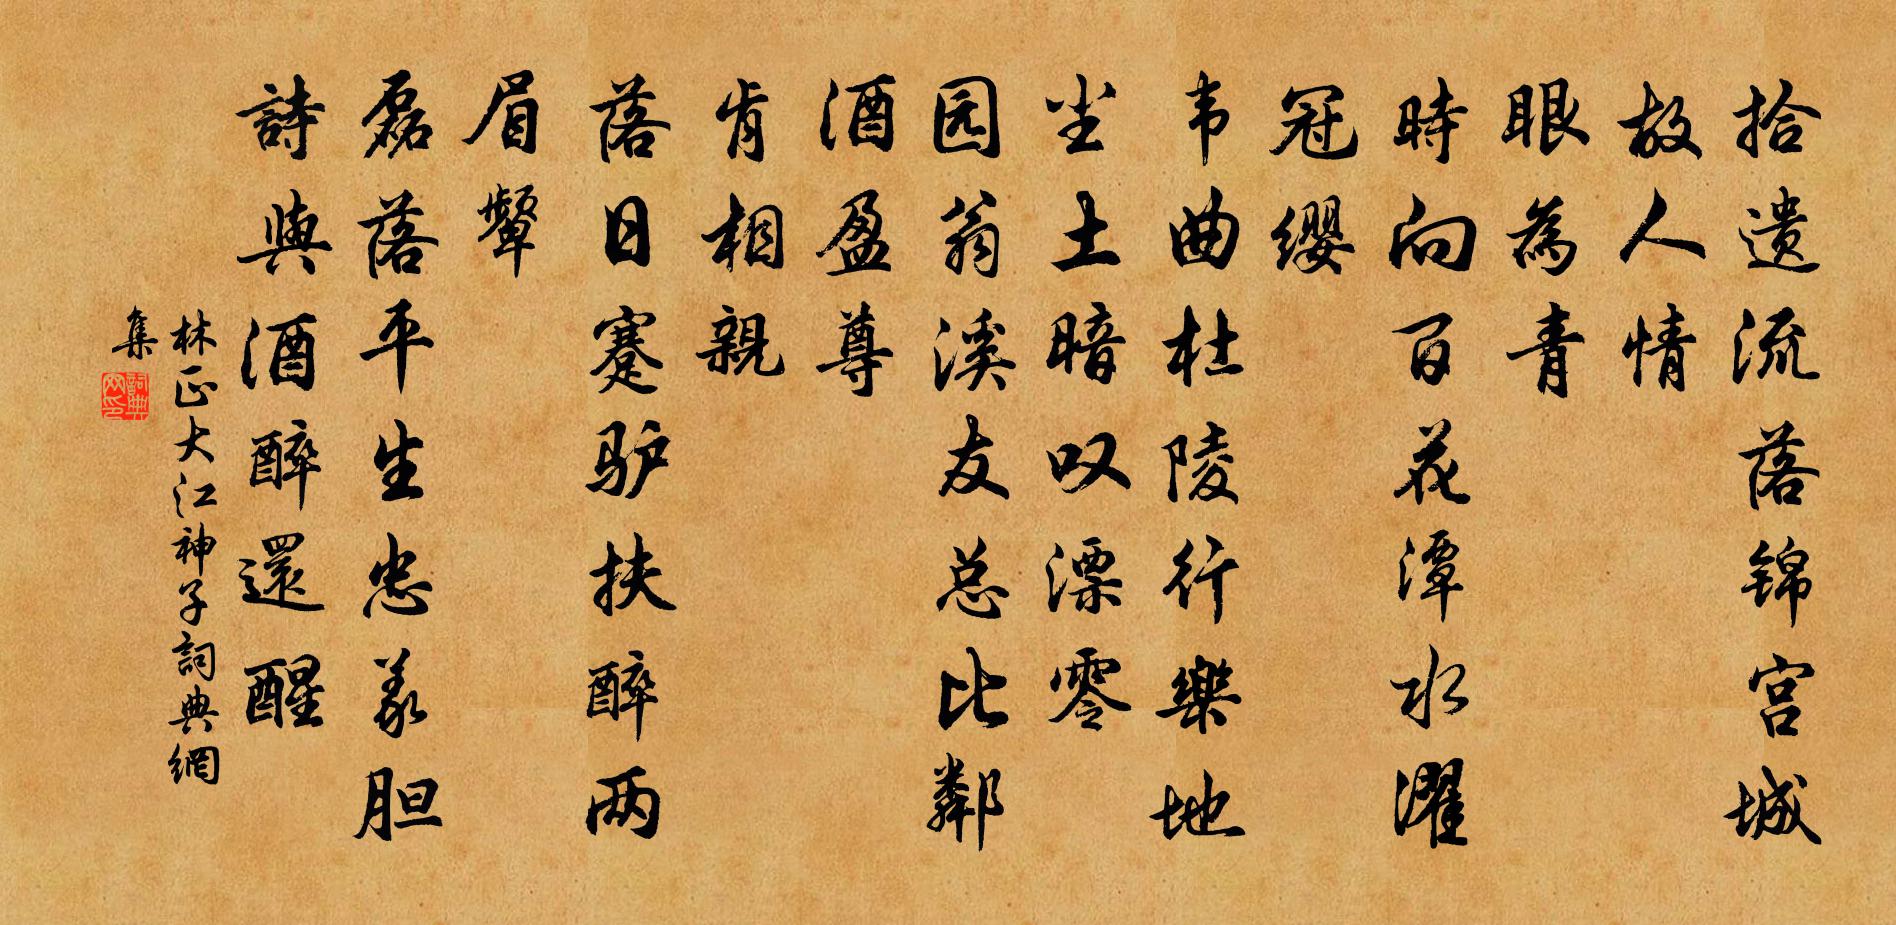 拾遗流落锦宫城
故人情
眼為青
時向百花潭水濯
冠缨
韦曲杜陵行樂地
尘土暗叹漂零
园翁溪友总比鄰
酒盈尊
肯相親
落日蹇驴扶醉两
眉颦
磊落平生忠义胆
詩與酒醉還醒
林正大江神子詞典網
集
詞典網印